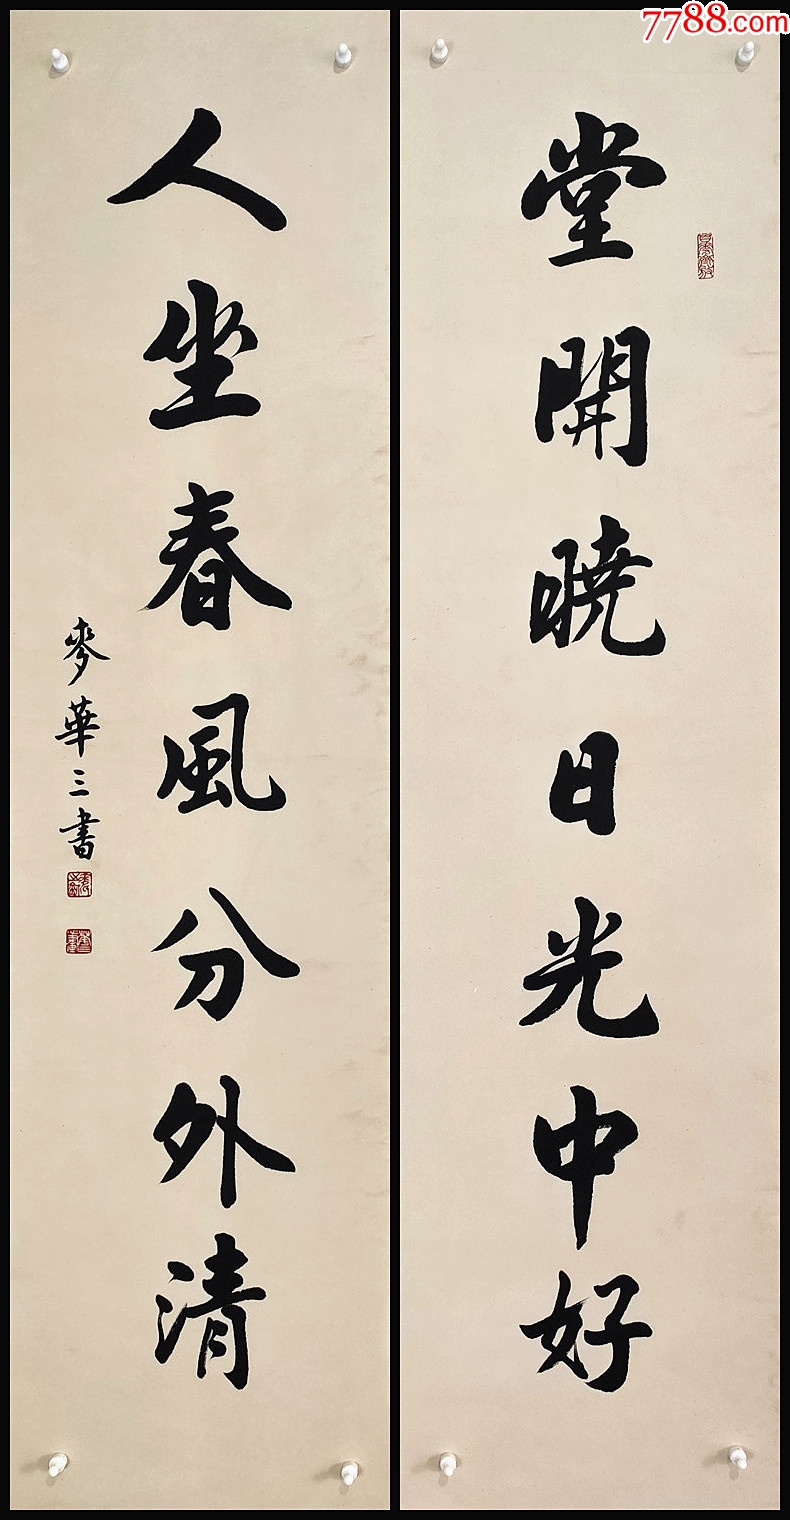 7788.com
堂開曉日光中好
人坐春風分外清
麥華三書